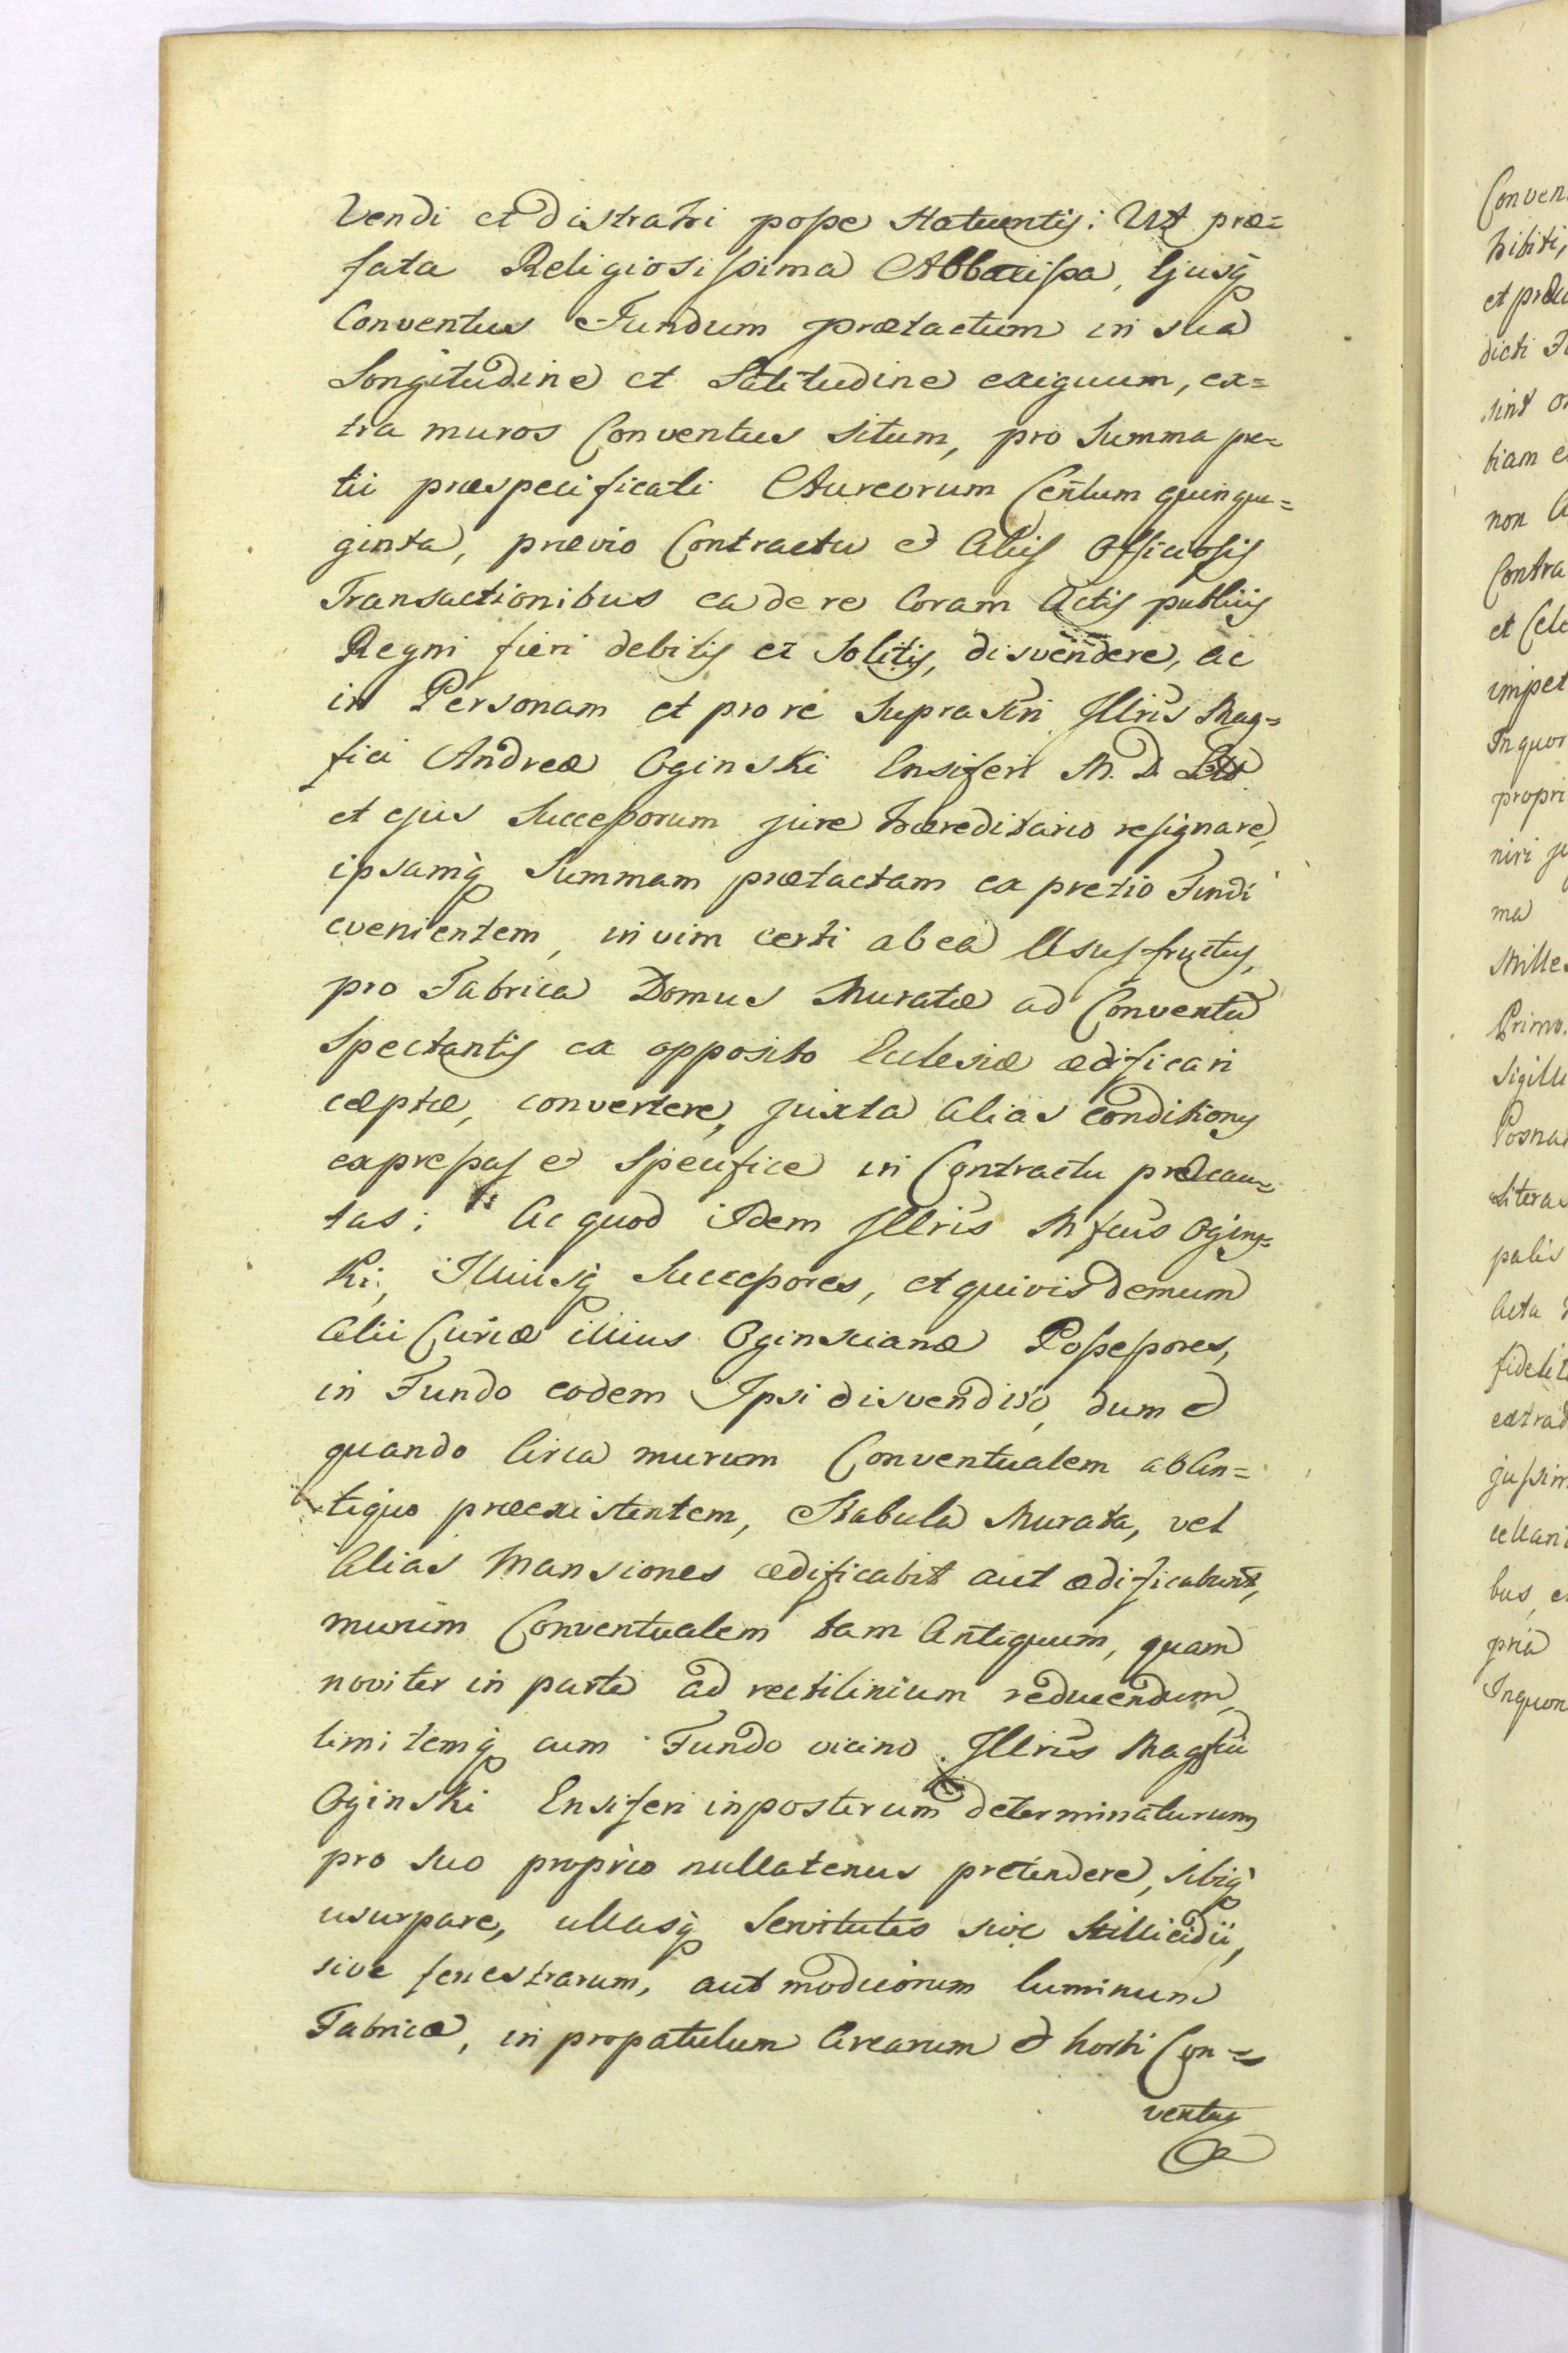 Vendi et distrahi posse statuentis: Ut præ=
fata Religiosissima Abbatissa, Ejusq
Conventus Fundum prætactum in sua
Longitudine et Latitudine exiguum, ex=
tra muros Conventus situm, pro Summa pre=
tii præspecificati Aureorum Centum quinqua=
ginta, prævio Contractu et Aliis Officiosis
Transactionibus ea de re Coram Actis publicis
Regni fieri debitis et Solitis, disvendere, ac
in Personam et pro re Suprascri Illris Mag=
fici Andreæ Oginski Ensiferi M. D. Litt
et ejus Successorum jure hæreditario resignare,
ipsamq Summam prætactam ex pretio Fundi
evenientem, in vim certi ab ea Ususfructus,
pro Fabrica Domus Muratæ ad Conventu
Spectantis ex opposito Ecclesiæ ædificari
cæptæ, convertere, juxta Alias conditiones
expressas et Specifice in Contractu præcau=
tas: Ac quod idem Illris Mfcus Ogins=
ki, Illiusq Successores, et quivis demum
Alii Curiæ illius Oginscianæ Possessores,
in Fundo eodem Ipsi disvendito, dum et
quando Circa murum Conventualem ab An=
tiquo præexistentem, Stabula Murata, vel
Alias Mansiones ædificabit aut ædificabunt,
murum Conventualem tam Antiquum, quam
noviter in parte ad rectilinium reducendum,
limitemq cum Fundo vicino Illris Magfici
Oginski Ensiferi inposterum determinaturum
pro suo proprio nullatenus pretendere, sibiq
usurpare, ullasq Servitutes sive Stillicidii,
sive fenestrarum, aut modicorum luminum
Fabricæ, in propatulum Arearum et horti Con=
ventus
Conven
hibiti,
et præ
dicti F
sint o
tiam e
non A
Contra
et Cele
impet
In quor
propri
niri
ma
Mille
Primo.
Sigillu
Posna
Literas
palis
Acta
fidelit
extrad
jussim
cellari
bus, e
pria
In quor